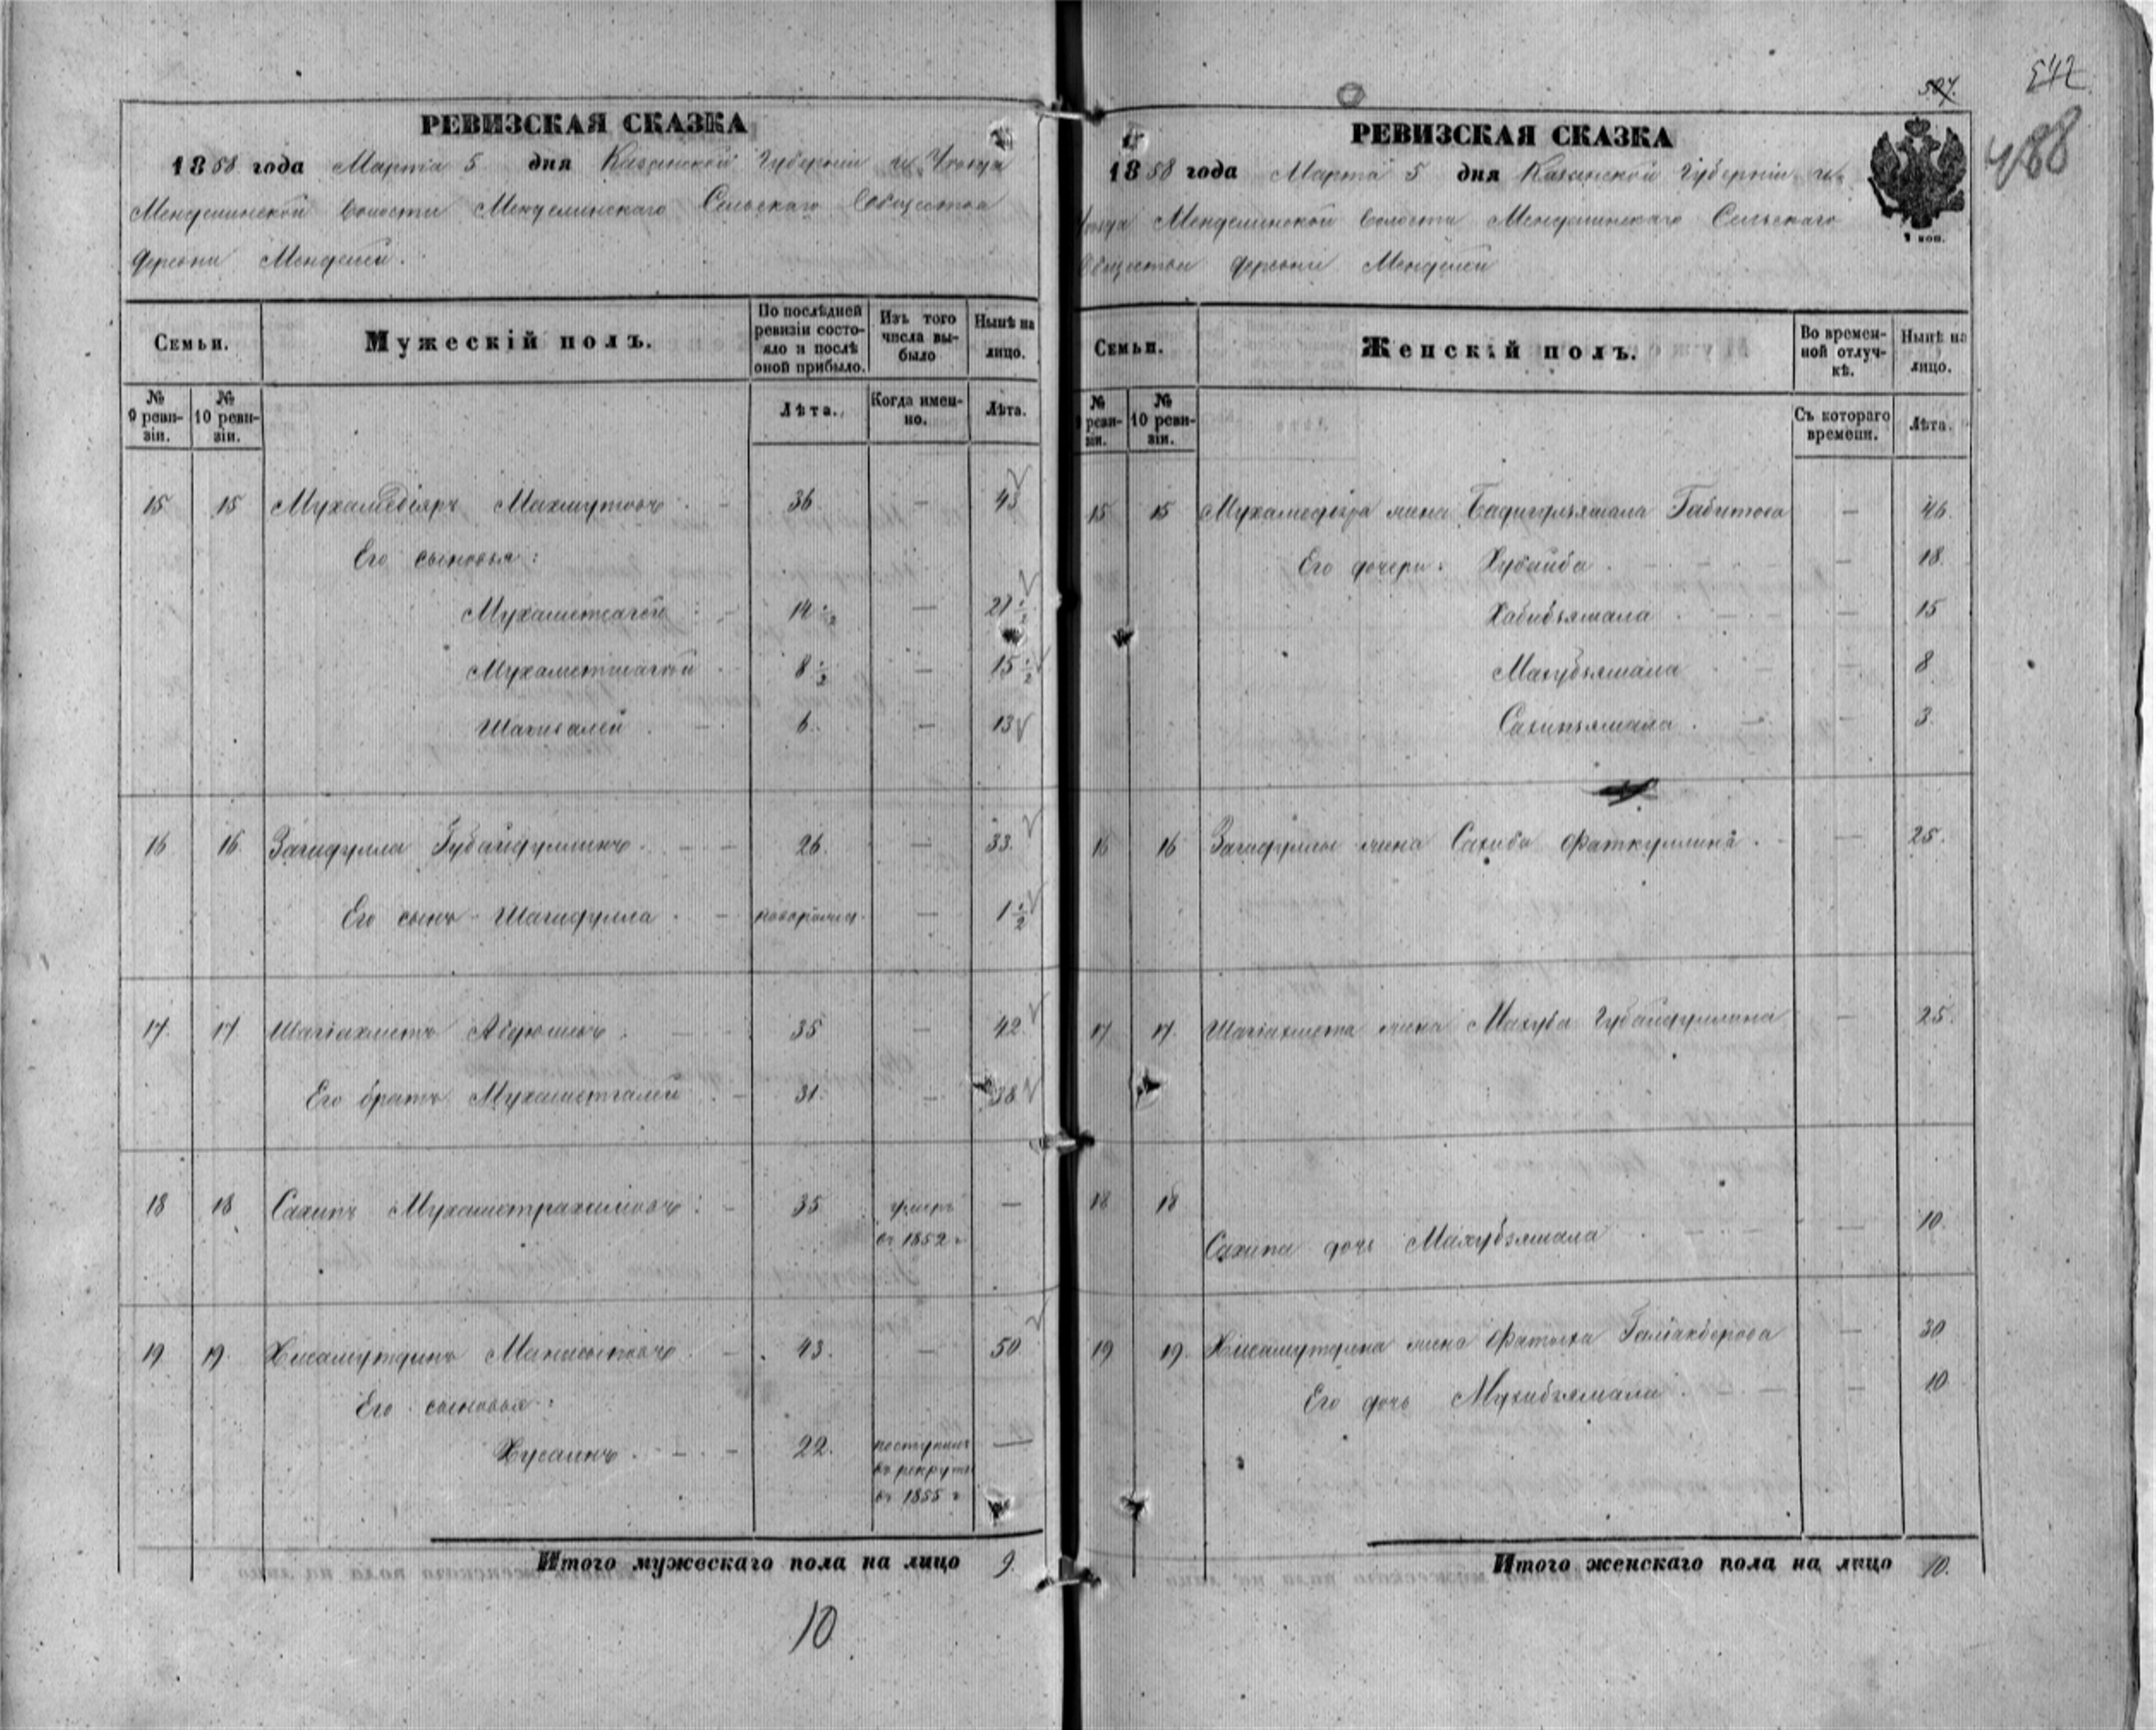 РЕВИЗСКАЯ СКАЗКА
1858 года Марта 5 дня Казанской Губернии и Уезда
Менделинской волости Менделинскаго Сельскаго Общества
деревни Менделей.
Семьи. Мужескій полъ. По послѣдней ревизіи состояло и послѣ оной прибыло. Изъ того числа выбыло Нынѣ на лицо.
№ 9 ревизіи. № 10 ревизіи. Лѣта. Когда именно. Лѣта.
15 15 Мухамедіяръ Махмутовъ. - 36 — 43
Его сыновья:
14 1/2 — 21 1/2
8 1/2 — 15 1/2
Шагивалей. - 6. — 13
16 16 Загидулла Губайдуллинъ. - - 26. — 33.
Его сынъ Шагидулла. - новорожд. — 1 1/2
17. 17 Шагіахметъ 35 — 42
Его братъ Мухаметгалей. - 31. — 38
18 18 Сахипъ Мухаметрахимовъ: - 35 умеръ —
въ 1852 г
19 19. Хисамутдинъ - 43. — 50
Его сыновья:
Хусаинъ. - - 22. поступилъ —
въ рекруты
въ 1855 г
Итого мужескаго пола на лицо 9.
10
507.
542
488
РЕВИЗСКАЯ СКАЗКА
1858 года Марта 5 дня Казанской Губерніи и
Уезда Менделинской волости Менделинскаго Сельскаго
Общества деревни Менделей
Семьи. Женскій полъ. Во временной отлучкѣ. Нынѣ на лицо.
№ 9 ревизіи. № 10 ревизіи. Съ котораго времени. Лѣта.
15 15 Мухамедіяра жена Габитова — 46.
Его дочери: Хубайба. — 18.
Хабибзямала. — 15
Махубзямала — 8
Сахипзямала. — 3.
16 16 Загидуллы жена Сахиба Фаткуллина. — 25.
17 17. Шагіахмета жена Махуба Губайдуллина — 25.
18 18
Сахипа дочь Махубзямала. — 10.
19 19. Хисамутдина жена — 30
Его дочь Мухибзямала. — 10
Итого женскаго пола на лицо 10.